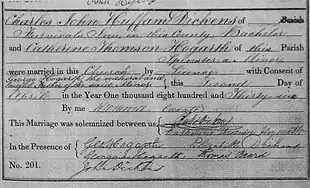 Charles John Huffam Dickens of
Furnivals Inn in this County Bachelor
and Catherine Thomson Hogarth of this Parish
Spinster a Minor
were married in this Church by Licence with Consent of
George Hogarth the natural and
lawful Father of the said Minor this Second Day of
April in the Year One thousand eight hundred and Thirty six
By me
This Marriage was solemnized between us
Catherine Thomson Hogarth
In the Presence of Geo Hogarth Elizabeth Dickens
Georgina Hogarth Thomas Beard
No. 201. John Dickens